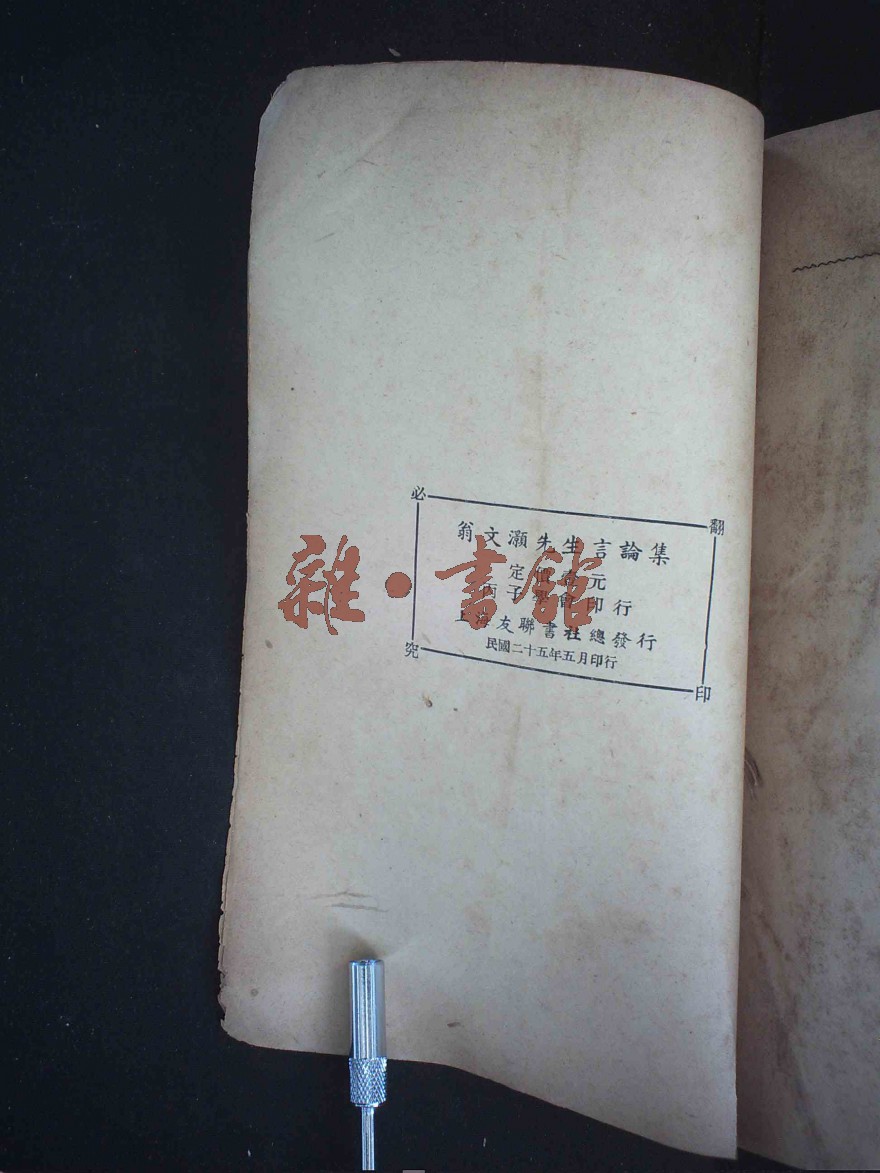 翁文灝先生言論集
定價壹元
丙子學會印行
上海友聯書社總發行
民國二十五年五月印行
翻印必究
雜·書館